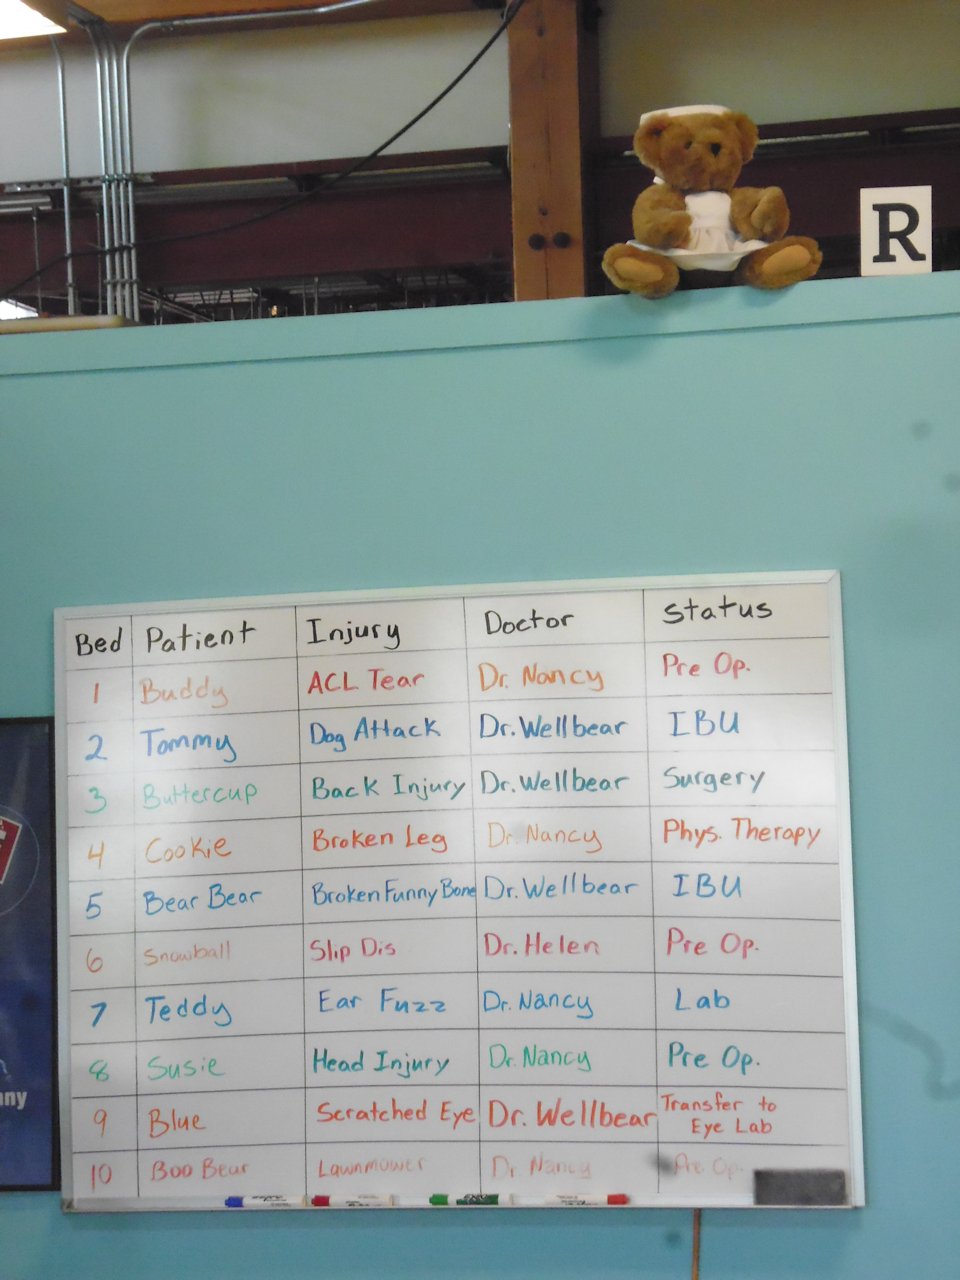 R
Bed Patient Injury Doctor Status
1 Buddy ACL Tear Dr. Nancy Pre Op.
2 Tommy Dog Attack Dr. Wellbear IBU
3 Buttercup Back Injury Dr. Wellbear Surgery
4 Cookie Broken Leg Dr. Nancy Phys. Therapy
5 Bear Bear Broken Funny Bone Dr. Wellbear IBU
6 Snowball Slip Dis Dr. Helen Pre Op.
7 Teddy Ear Fuzz Dr. Nancy Lab
8 Susie Head Injury Dr. Nancy Pre Op.
9 Blue Scratched Eye Dr. Wellbear Transfer to
Eye Lab
10 Boo Bear Lawnmower Dr Nancy Pre Op.
ny